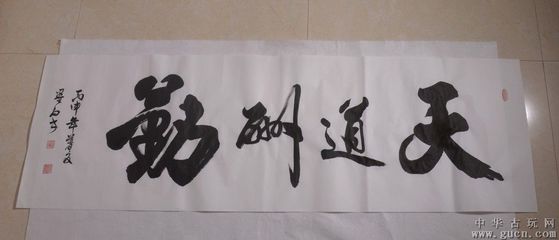 天道酬勤
丙申年
中华古玩网
www.gucn.com